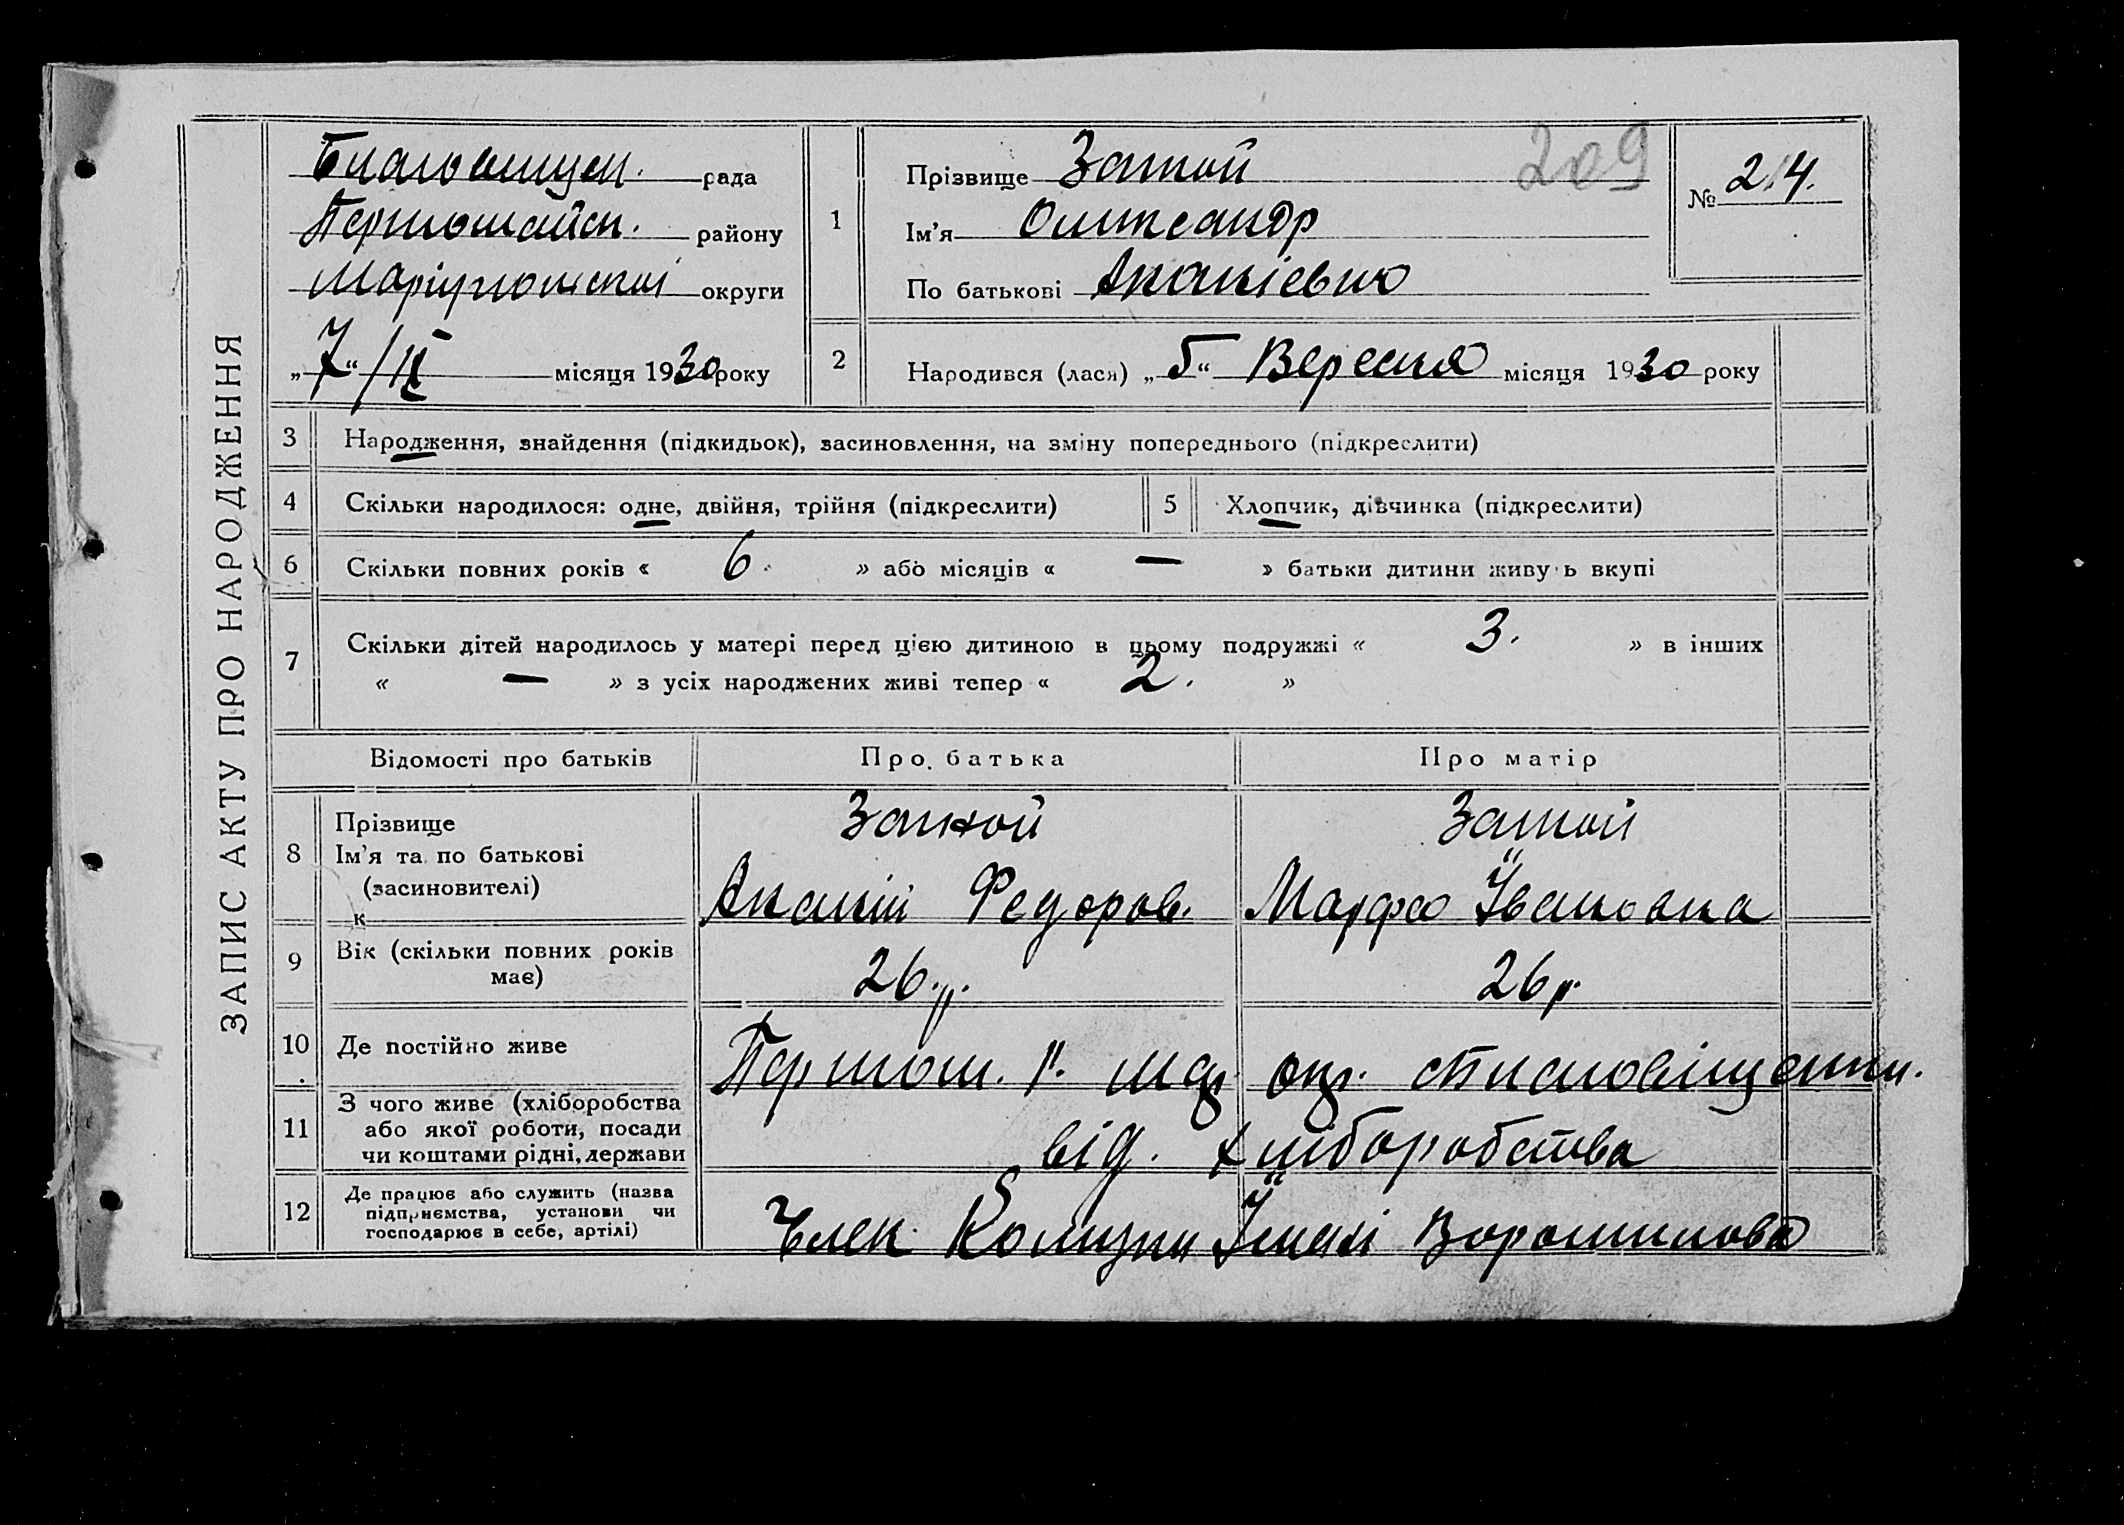 ЗАПИС АКТУ ПРО НАРОДЖЕННЯ
Благовищен. рада
Першотравн. району
Маріупольської округи
„7“/IX місяця 1930 року
1
Прізвище Затой
Ім'я Олександр
По батькові Ананієвич
209
№ 214.
2 Народився (лася) „5“ Вересня місяця 1930 року
3 Народження, знайдення (підкидьок), засиновлення, на зміну попереднього (підкреслити)
4 Скільки народилося: одне, двійня, трійня (підкреслити) 5 Хлопчик, дівчинка (підкреслити)
6 Скільки повних років « 6. » або місяців « — » батьки дитини живуть вкупі
7 Скільки дітей народилось у матері перед цією дитиною в цьому подружжі « 3. » в інших
« — » з усіх народжених живі тепер « 2. »
Відомості про батьків Про батька Про матір
8 Прізвище Затой Затой
Ім'я та по батькові
(засиновителі) Ананій Федоров. Марфа Івановна
к
9 Вік (скільки повних років має) 26 р. 26 р.
10 Де постійно живе р. Мар. окр. Благовіщенка.
11 З чого живе (хліборобства
або якої роботи, посади
чи коштами рідні, держави від. хліборобства
12 Де працює або служить (назва
підприємства, установи чи
господарює в себе, артілі) Член Комуни Імені Ворошилова